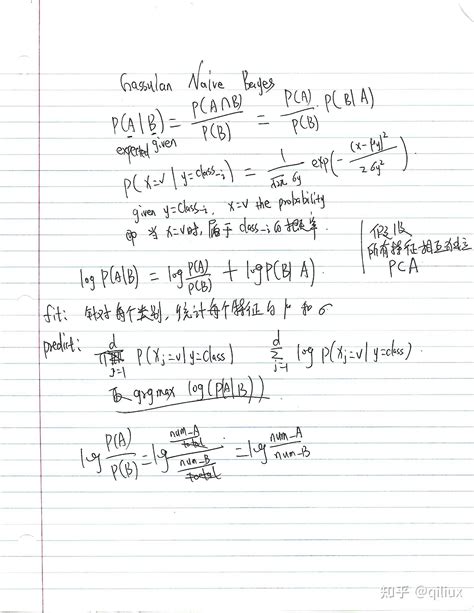 Gassuian Naive Bayes
P(A|B) = P(A∩B)/P(B) = P(A)/P(B) · P(B|A)
expected given
P(x=v | y=class_i) = 1/√2π σy exp(-(x-μy)²/2σy²)
given y=class_i, x=v the probability
即 当 x=v时, 属于 class_i 的概率.
假设
所有特征相互独立
PCA
log P(A|B) = log P(A)/P(B) + log P(B|A).
fit: 针对每个类别, 统计每个特征的 μ 和 σ
predict: d Π j=1 P(Xj=v|y=class) d Σ j=1 log P(Xj=v|y=class).
取 argmax log(P(A|B))
log P(A)/P(B) = log (num_A/total)/(num_B/total) = log num_A/num_B
知乎 @qiliux